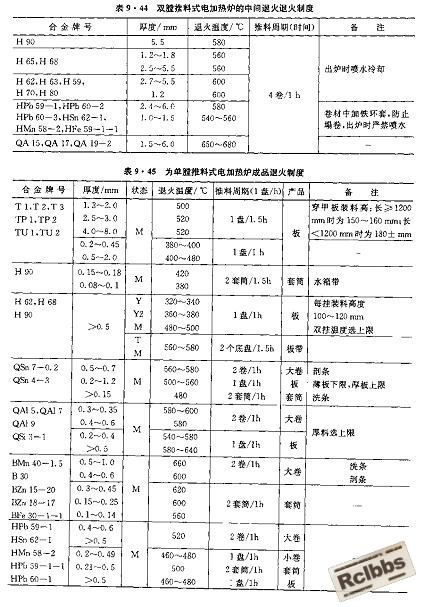 表 9·44 双膛推料式电加热炉的中间退火退火制度
合金牌号 厚度/mm 退火温度/℃ 推料周期(时间) 备注
H 90 5.5 580
H 65,H 68 1.2~1.8 560
2.5~5.5 560 出炉时喷水冷却
H 62,H 63,H 59, 2.7~5.5 600
H 70,H 80 1.2 600 4卷/1 h
HPb 59-1,HPb 60-2 2.4~6.0 580 卷材中加铁环套,防止
HPb 60-3,HSn 62-1, 1.0~1.5 540~560 塌卷,出炉时严禁喷水
HMn 58-2,HFe 59-1-1
QA 15,QA 17,QA 19-2 1.5~6.0 650~680 —
表 9·45 为单膛推料式电加热炉成品退火制度
合金牌号 厚度/mm 状态 退火温度/℃ 推料周期(1盘/h) 产品 备注
T 1,T 2,T 3 1.3~2.0 500 穿甲板装料高:长≥1200
TP 1,TP 2 2.5~3.0 520 1盘/1.5h mm时为150~160 mm;长
TU 1,TU 2 4.0~8.0 M 520 板 <1200 mm时为180± mm
0.2~0.45 380~400
0.5~2.0 400~480 1盘/1 h
H 90 0.15~0.18 M 420 2套筒/1.5h 套筒 水箱带
0.08~0.1 380
H 62,H 68 Y 320~340 每挂装料高度
H 90 Y2 360~380 1盘/1h 板 100~120 mm
>0.5 M 480~500 双挂温度选上限
T
M 550~580 2个底盘/1.5h 板带
QSn 7-0.2 0.5~0.7 560~580 2卷/1h 大卷 剖条
QSn 4-3 0.2~1.2 M 500~560 1盘/1h 板 薄板下限,厚板上限
>0.15 480 2套筒/1h 套筒 洗条
QAl 5,QAl 7 0.3~0.35 580~600 2卷/1h 大卷
QAl 9 0.4~0.6 M 580 厚料选上限
QSi 3-1 0.2~0.4 540~580 1盘/1h 板
>0.5 580~640
BMn 40-1.5 0.5~1.0 660 2卷/1h 大卷 洗条
B 30 0.4~0.6 600 剖条
BZn 15-20 0.3~0.45 M 620
BZn 18-17 0.15~0.25 600 2套筒/1h 套筒 —
BFe 30-1-1 0.1~0.14 560
HPb 59-1 0.4~0.6 520 2卷/1h 大卷
HSn 62-1 >0.5
HMn 58-2 0.2~0.49 M 460~480 1盘/1h 小卷 —
HPb 59-1-1 0.21~0.5 500 2套筒/1h 套筒
HPb 60-1 >0.5 460~480 1盘/1h 板
Rclbbs